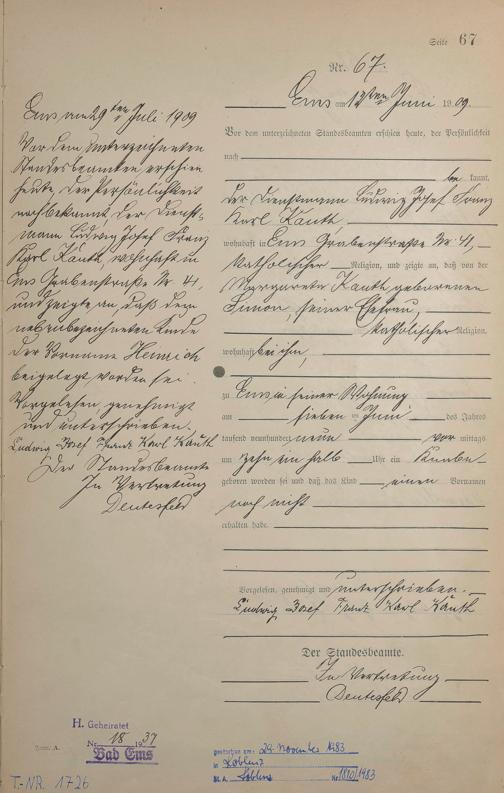 Seite 67
Nr. 67.
Ems am 12ten Juni 1909.
Vor dem unterzeichneten Standesbeamten erschien heute, der Persönlichkeit
nach
be kannt,
der Dienstmann Ludwig Josef Franz
Karl Kauth
wohnhaft in Ems Grabenstraße Nr 41,
Katholischer Religion, und zeigte an, daß von der
Margarete Kauth geborenen
Simon, seiner Ehefrau,
Katholischer Religion,
wohnhaft bei ihm,
zu Ems in seiner Wohnung
am sieben ten Juni des Jahres
tausend neunhundert neun vor mittags
um zehn ein halb Uhr ein Knabe
geboren worden sei und daß das Kind einen Vornamen
noch nicht
erhalten habe.
Vorgelesen, genehmigt und unterschrieben.
Ludwig Josef Franz Karl Kauth
Der Standesbeamte.
In Vertretung
Ems am 29ten Juli 1909
Vor dem unterzeichneten
Standesbeamten erschien
heute, der Persönlichkeit
nach bekannt, der Dienst-
mann Ludwig Josef Franz
Karl Kauth, wohnhaft in
Ems Grabenstraße Nr. 41,
und zeigte an, daß dem
nebenbezeichneten Kinde
der Vorname Heinrich
beigelegt worden sei.
Vorgelesen genehmigt
und unterschrieben.
Ludwig Josef Franz Karl Kauth
Der Standesbeamte
In Vertretung
H. Geheiratet
Nr. 18 1937
Bad Ems
Form. A.
T.-NR. 1726
gestorben am: 29. November 1983
in Koblenz
St. A. Koblenz Nr. 1810/1983